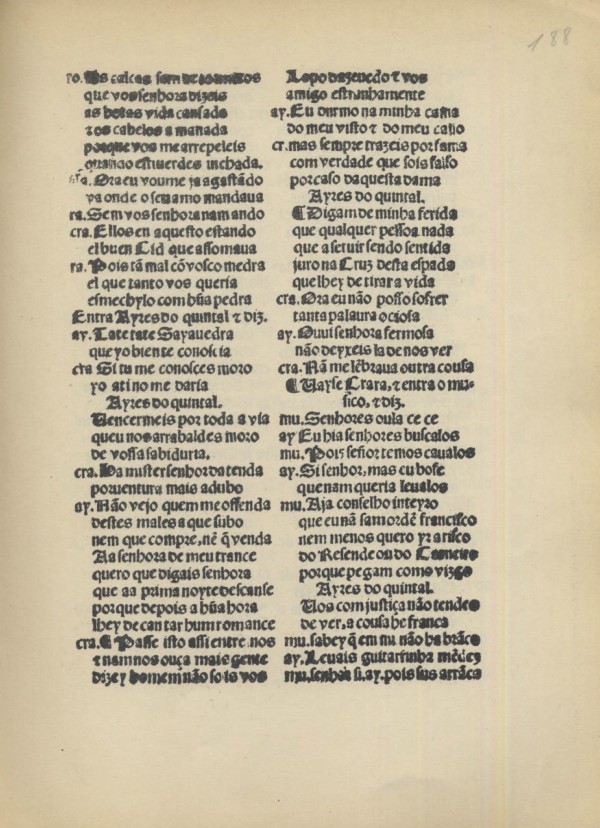 188
ro. As calças sem de
que vos senhora dizeis
as botas vida cansada
τ os cabelos a manada
porque vos me arrepeleis
quando estiuerdes inchada.
Ora eu voume ja agastãdo
va onde o seu amo mandaua
ra. Sem vos senhora nam ando
cra. Ellos en aquesto estando
el buen Cid que assomaua
ra. Pois tã mal cõvosco medra
el que tanto vos queria
esmechylo com hũa pedra
Entra Ayres do quintal τ diz.
ay. Tate tate Sayauedra
que yo bien te conoscia
cra Si tu me conosces moro
yo a ti no me daria
Ayres do quintal.
Uencermeis por toda a via
queu nos arrabaldes moro
de vossa sabiduria.
cra. Ha mister senhor da tenda
poruentura mais adubo
ay. Não vejo quem me offenda
destes males a que subo
nem que compre, nẽ q̃ venda
Aa senhora de meu trance
quero que digais senhora
que aa prima noyte descanse
porque depois a hũa hora
lhey de cantar hum romance
cra. ¶ Passe isto assi entre nos
τ nam nos ouça mais gente
dizey homem não sois vos
Lopo dazeuedo τ vos
amigo estranhamente
ay. Eu durmo na minha cama
do meu visto τ do meu calço
cr. mas sempre trazeis por fama
com verdade que sois falso
por caso daquesta dama
Ayres do quintal.
¶ Digam de minha ferida
que qualquer pessoa nada
que a seruir sendo sentida
juro na Cruz desta espada
que lhey de tirar a vida
cra. Ora eu não posso sofrer
tanta palaura ociosa
ay. Ouui senhora fermosa
não deyxeis la de nos ver
cra. Nã me lẽbraua outra cousa
¶ Uayse Crara, τ entra o mu-
sico, τ diz.
mu. Senhores oula ce ce
ay Eu hia senhores buscalos
mu. Pois señor temos caualos
ay. Si senhor, mas eu bofe
que nam queria leualos
mu. Aja conselho inteyro
que eu nã sam ordẽ francisco
nem menos quero yr a risco
do Resende ou do Carneiro
porque pegam como vizgo
Ayres do quintal.
Uos com justiça não tendes
de ver, a cousa he franca
mu. sabey q̃ em mi não ha brãca
ay. Leuais guitarrinha mẽdez
mu. senhor si. ay. pois sus arrãca